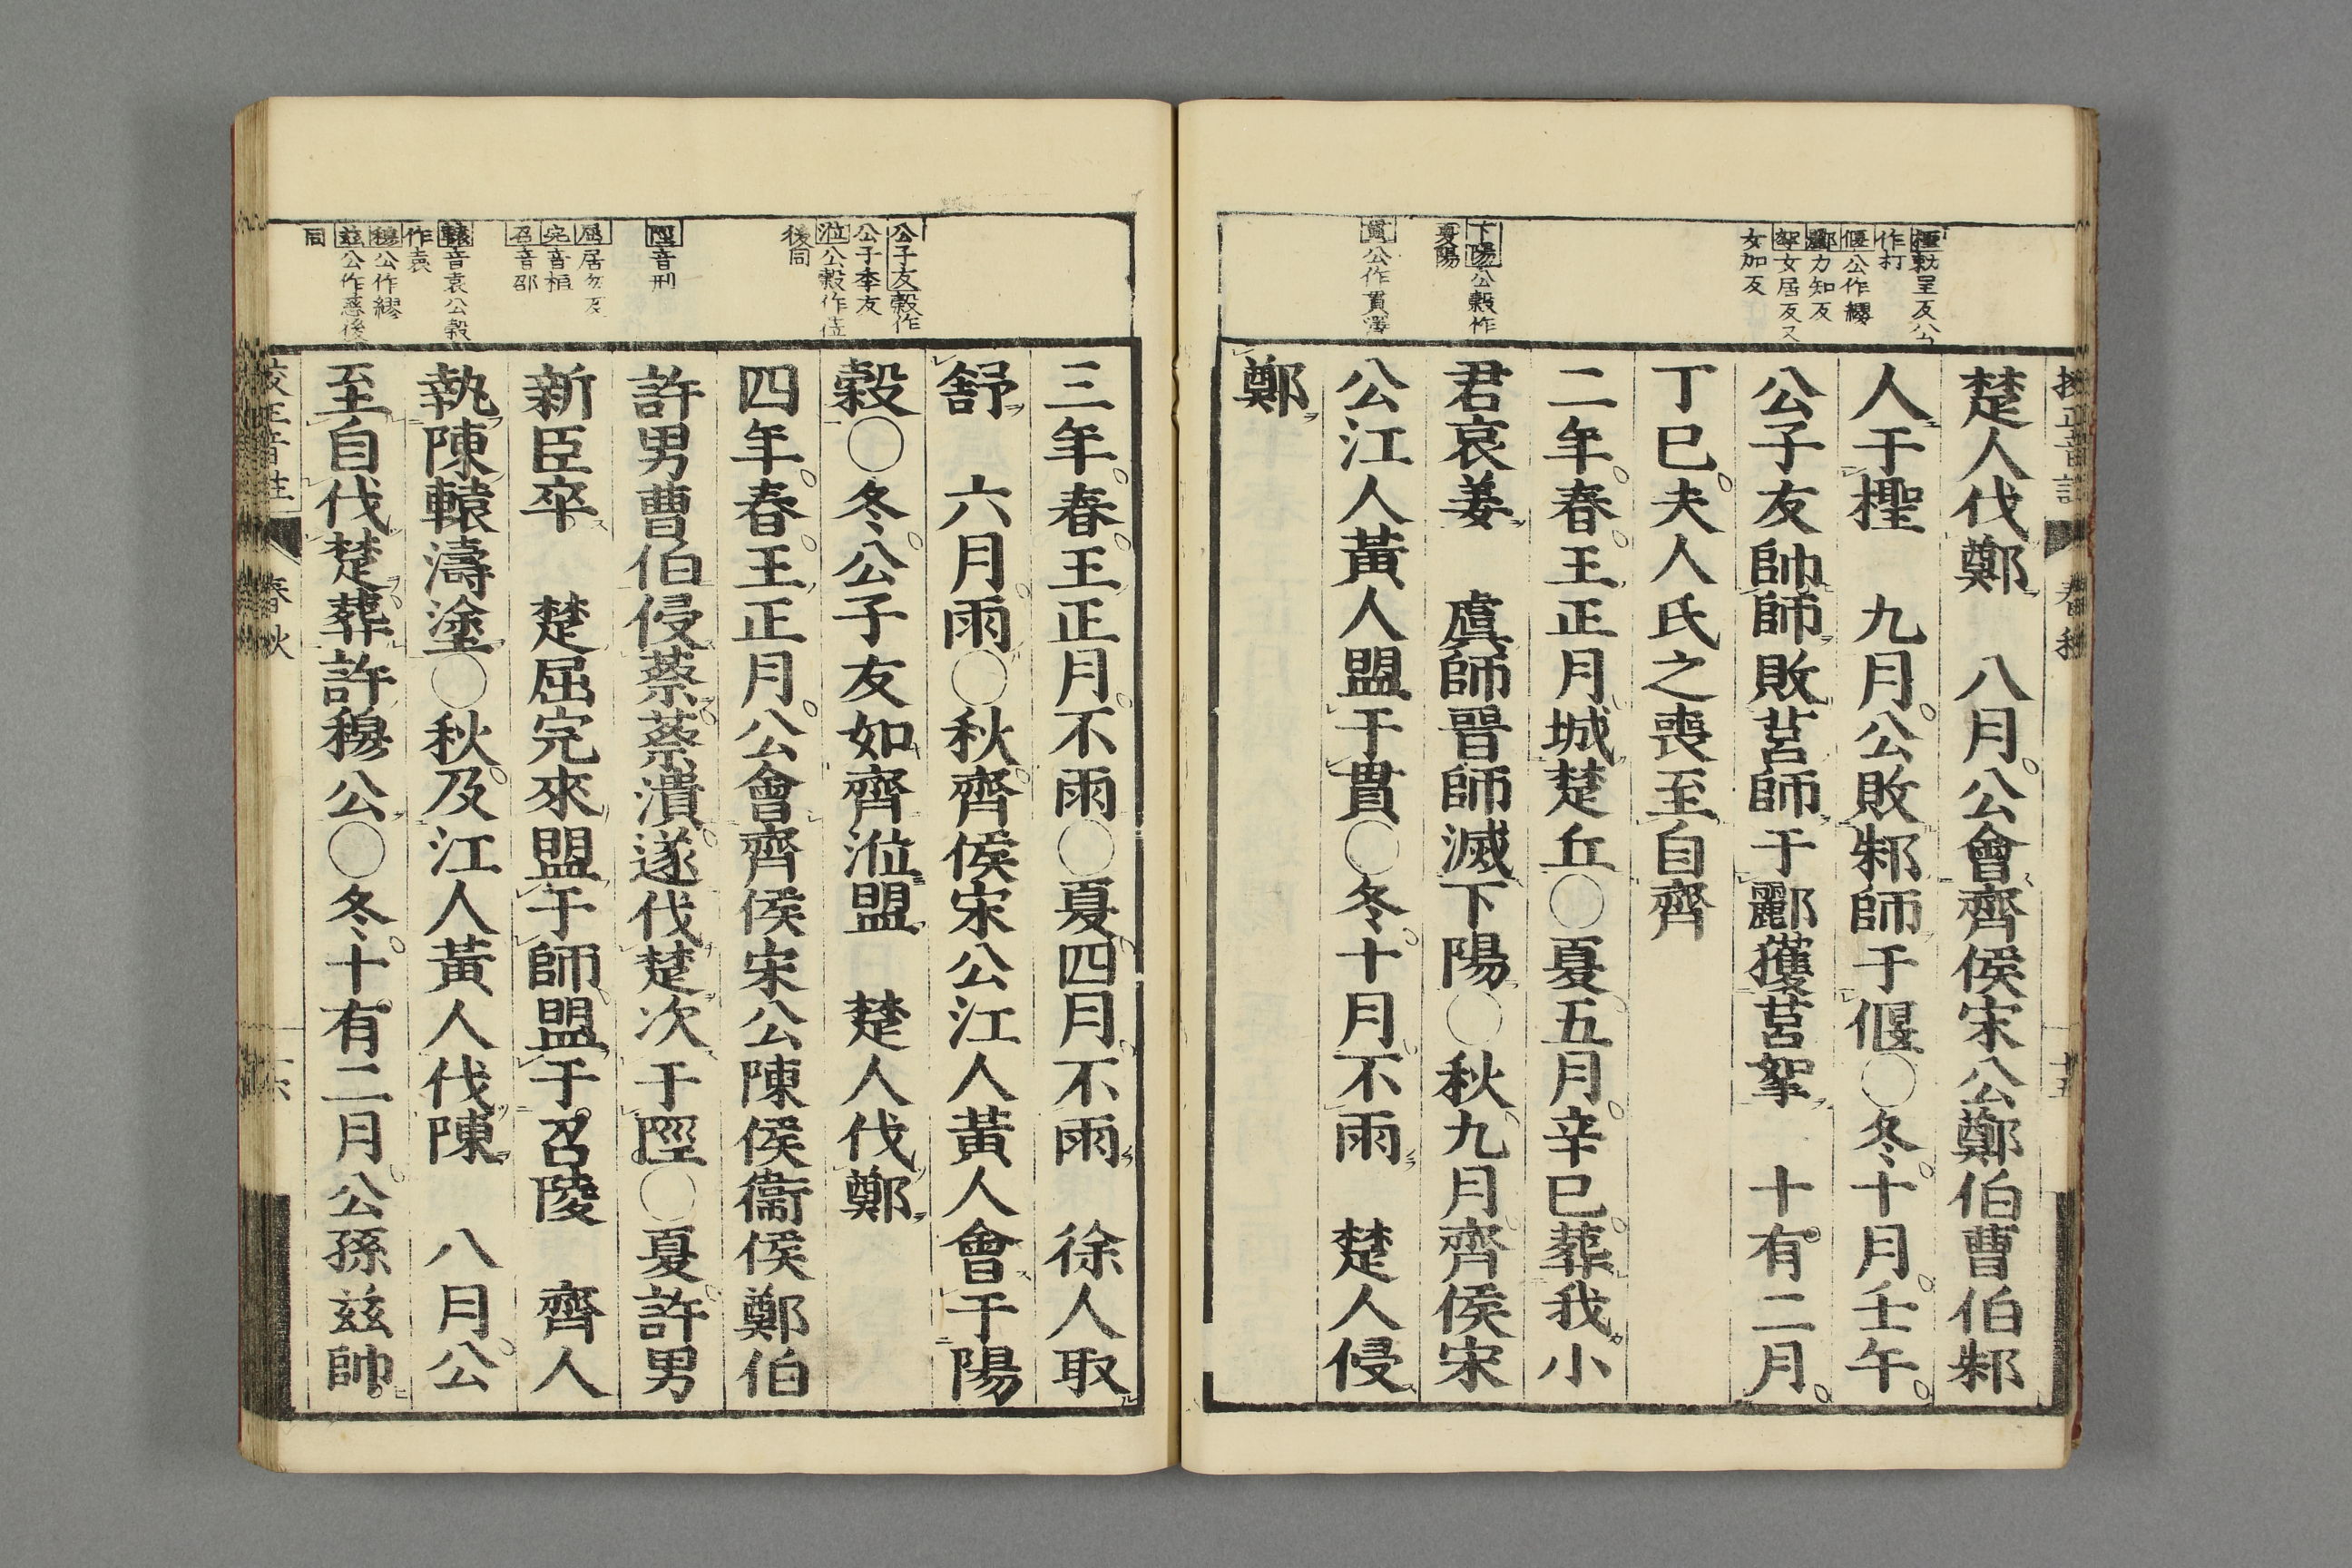 檉勅呈反公
作打
偃公作纓
酈力知反
挐女居反又
女加反
下陽公穀作
夏陽
貫公作貫澤
楚人伐鄭　八月公會齊侯宋公鄭伯曹伯邾
人于檉　九月公敗邾師于偃〇冬十月壬午
公子友帥師敗莒師于酈獲莒挐　十有二月
丁巳夫人氏之喪至自齊
二年春王正月城楚丘〇夏五月辛巳葬我小
君哀姜　虞師晉師滅下陽〇秋九月齊侯宋
公江人黃人盟于貫〇冬十月不雨　楚人侵
鄭
公子友穀作
公子季友
涖公穀作莅
後同
陘音刑
屈居勿反
完音桓
召音邵
轅音袁公穀
作袁
穆公作繆
茲公作慈後
同
三年春王正月不雨〇夏四月不雨　徐人取
舒　六月雨〇秋齊侯宋公江人黃人會于陽
穀〇冬公子友如齊涖盟　楚人伐鄭
四年春王正月公會齊侯宋公陳侯衞侯鄭伯
許男曹伯侵蔡蔡潰遂伐楚次于陘〇夏許男
新臣卒　楚屈完來盟于師盟于召陵　齊人
執陳轅濤塗〇秋及江人黃人伐陳　八月公
至自伐楚葬許穆公〇冬十有二月公孫茲帥
校正音註
春秋